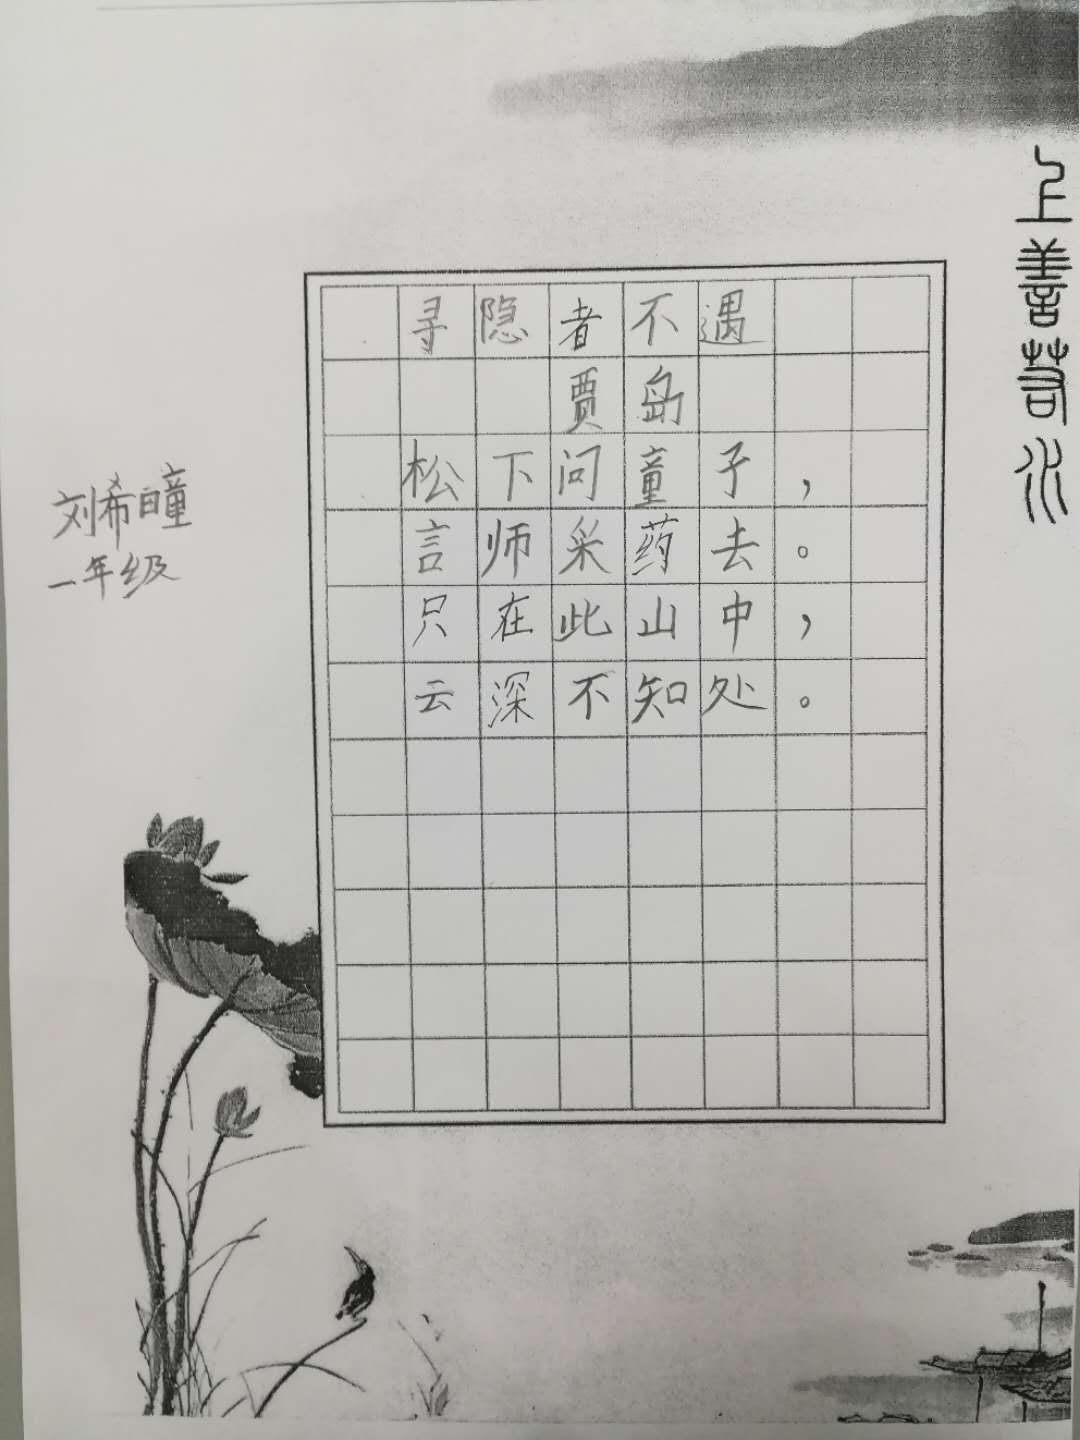 上善若水
寻隐者不遇
贾岛
松下问童子，
言师采药去。
只在此山中，
云深不知处。
刘希瞳
一年级